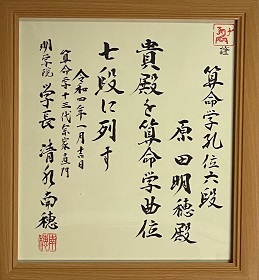 証
算命学孔位六段
原田明穂殿
貴殿を算命学曲位
七段に列す
令和四年一月吉日
算命学十三代宗家直門
明学院 学長 清水南穂